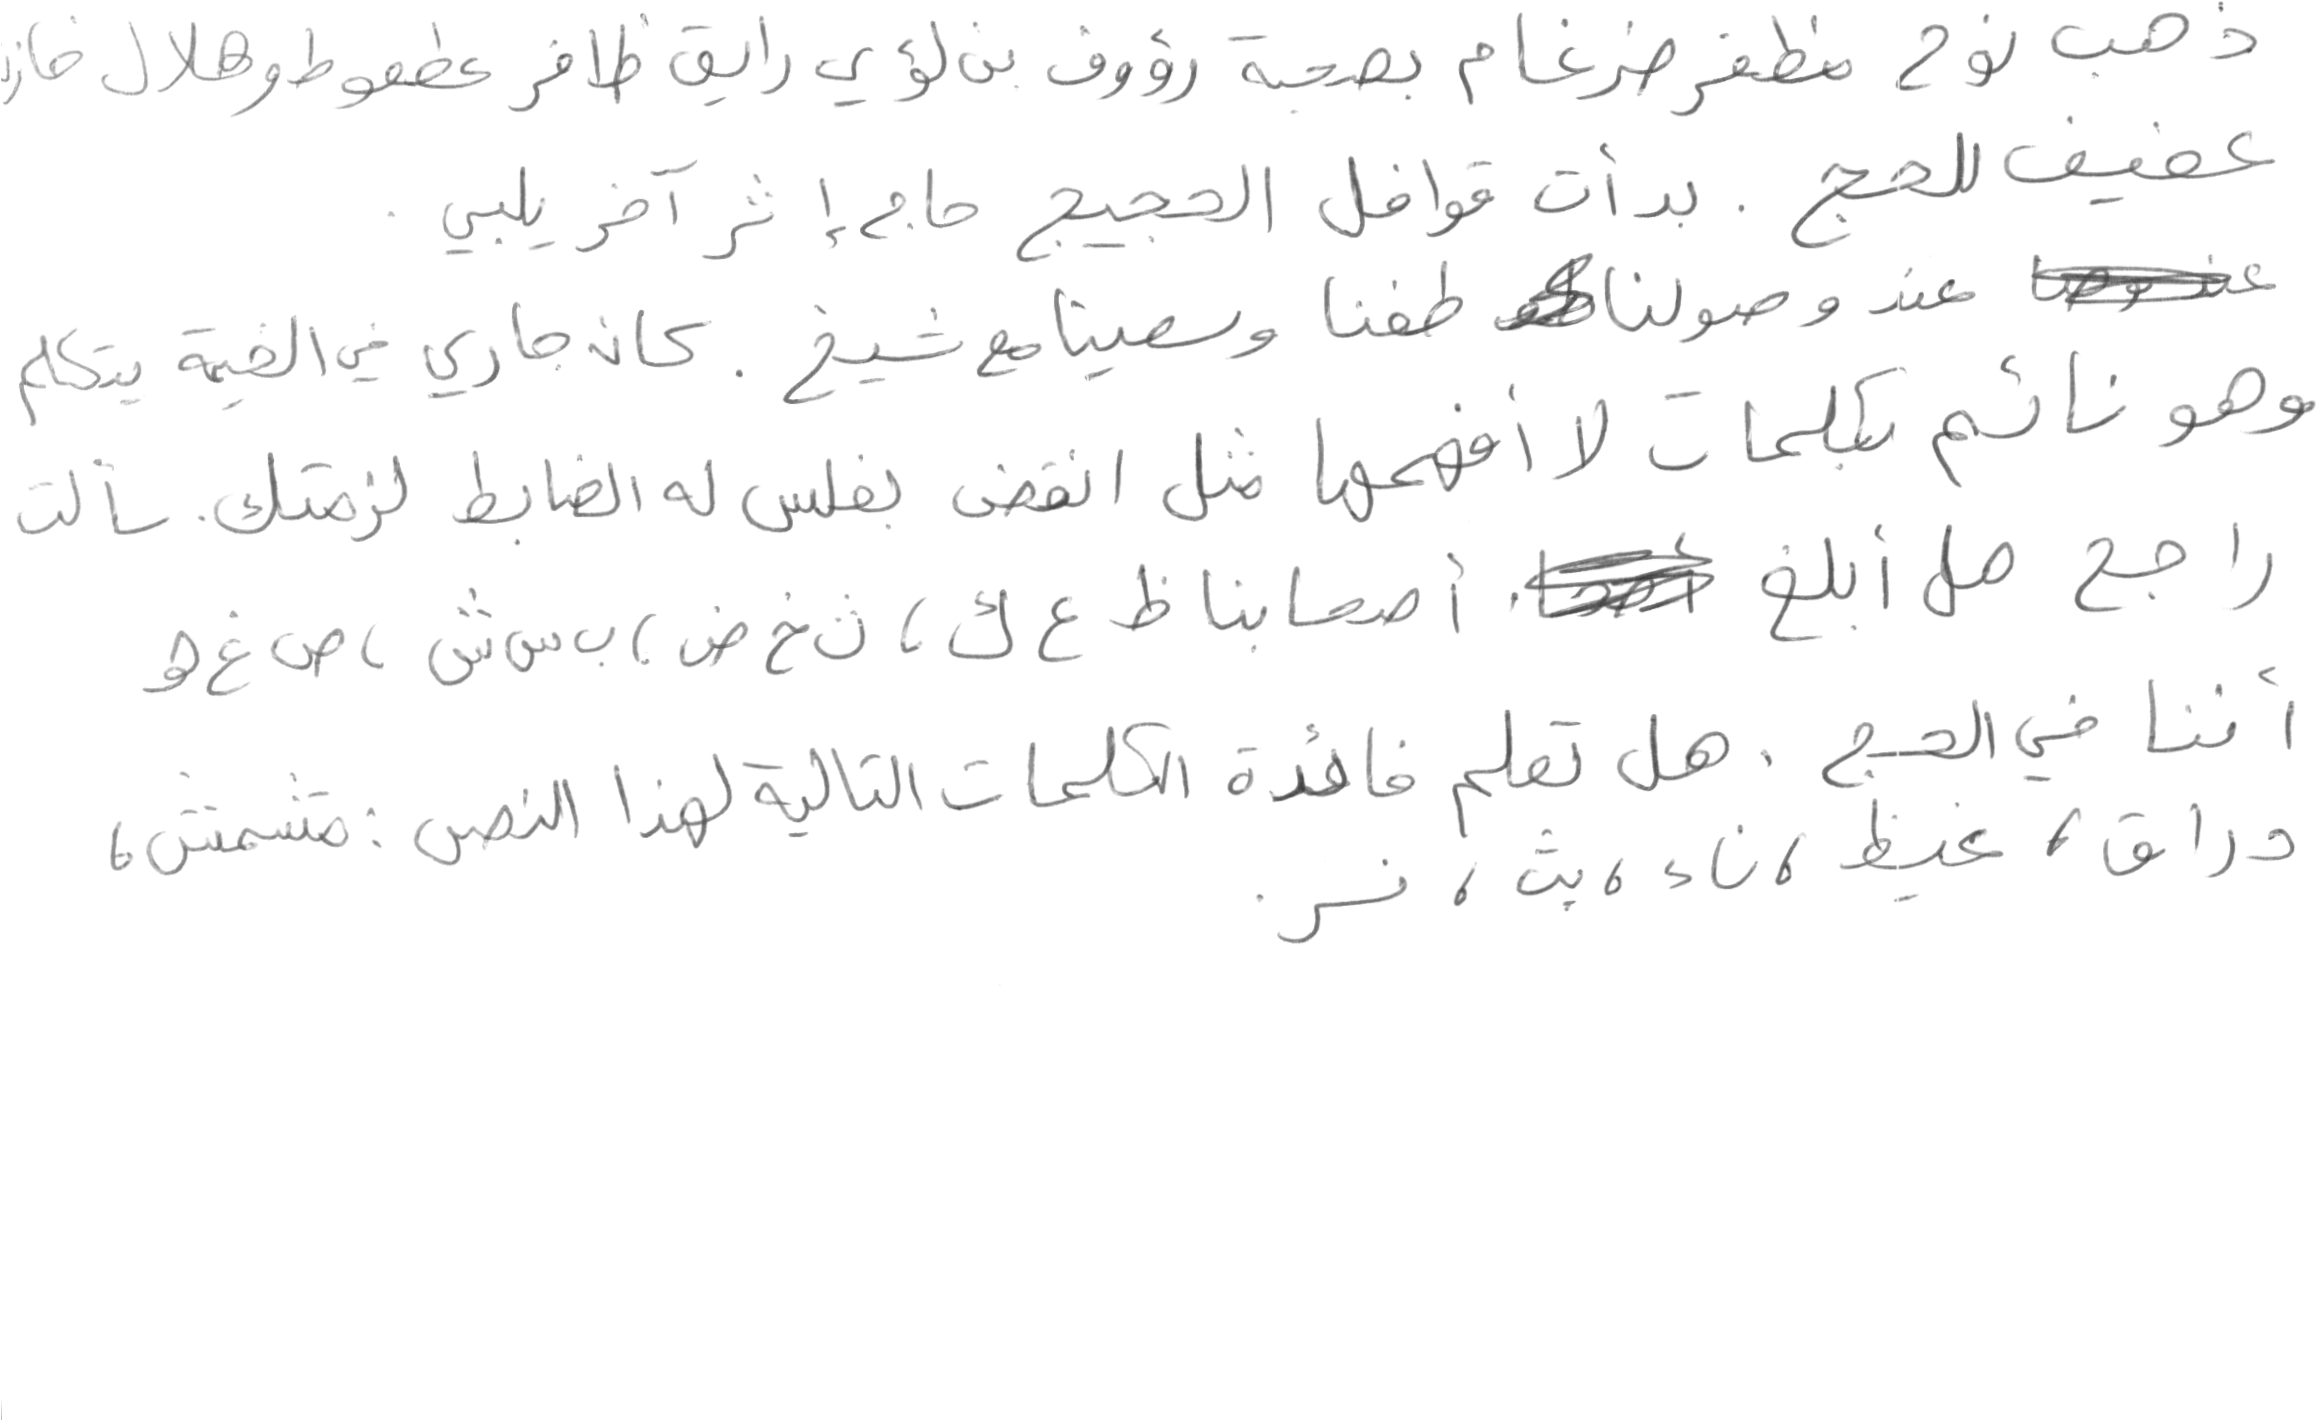 ذهب نوح مظفر ضرغام بصحبة رؤوف بن لؤي رايق ظافر عطعوط وهلال خازن
عفيف للحج . بدأت قوافل الحجيج حاج إثر آخر يلبي .
عند وصولنا طفنا وسعينا مع شيخ . كان جاري في الخيمة يتكلم
وهو نائم بكلمات لا أفهمها مثل انقض بغلس له الضابط لزمتك. سألت
راجح هل أبلغ أصحابنا ظ ع ك ، ث خ ض ، ب س ش ، ص غ ه
أننا في الحج . هل تعلم فائدة الكلمات التالية لهذا النص : مشمش ،
دراق ، غيظ ، ناد ، بث ، نسر .